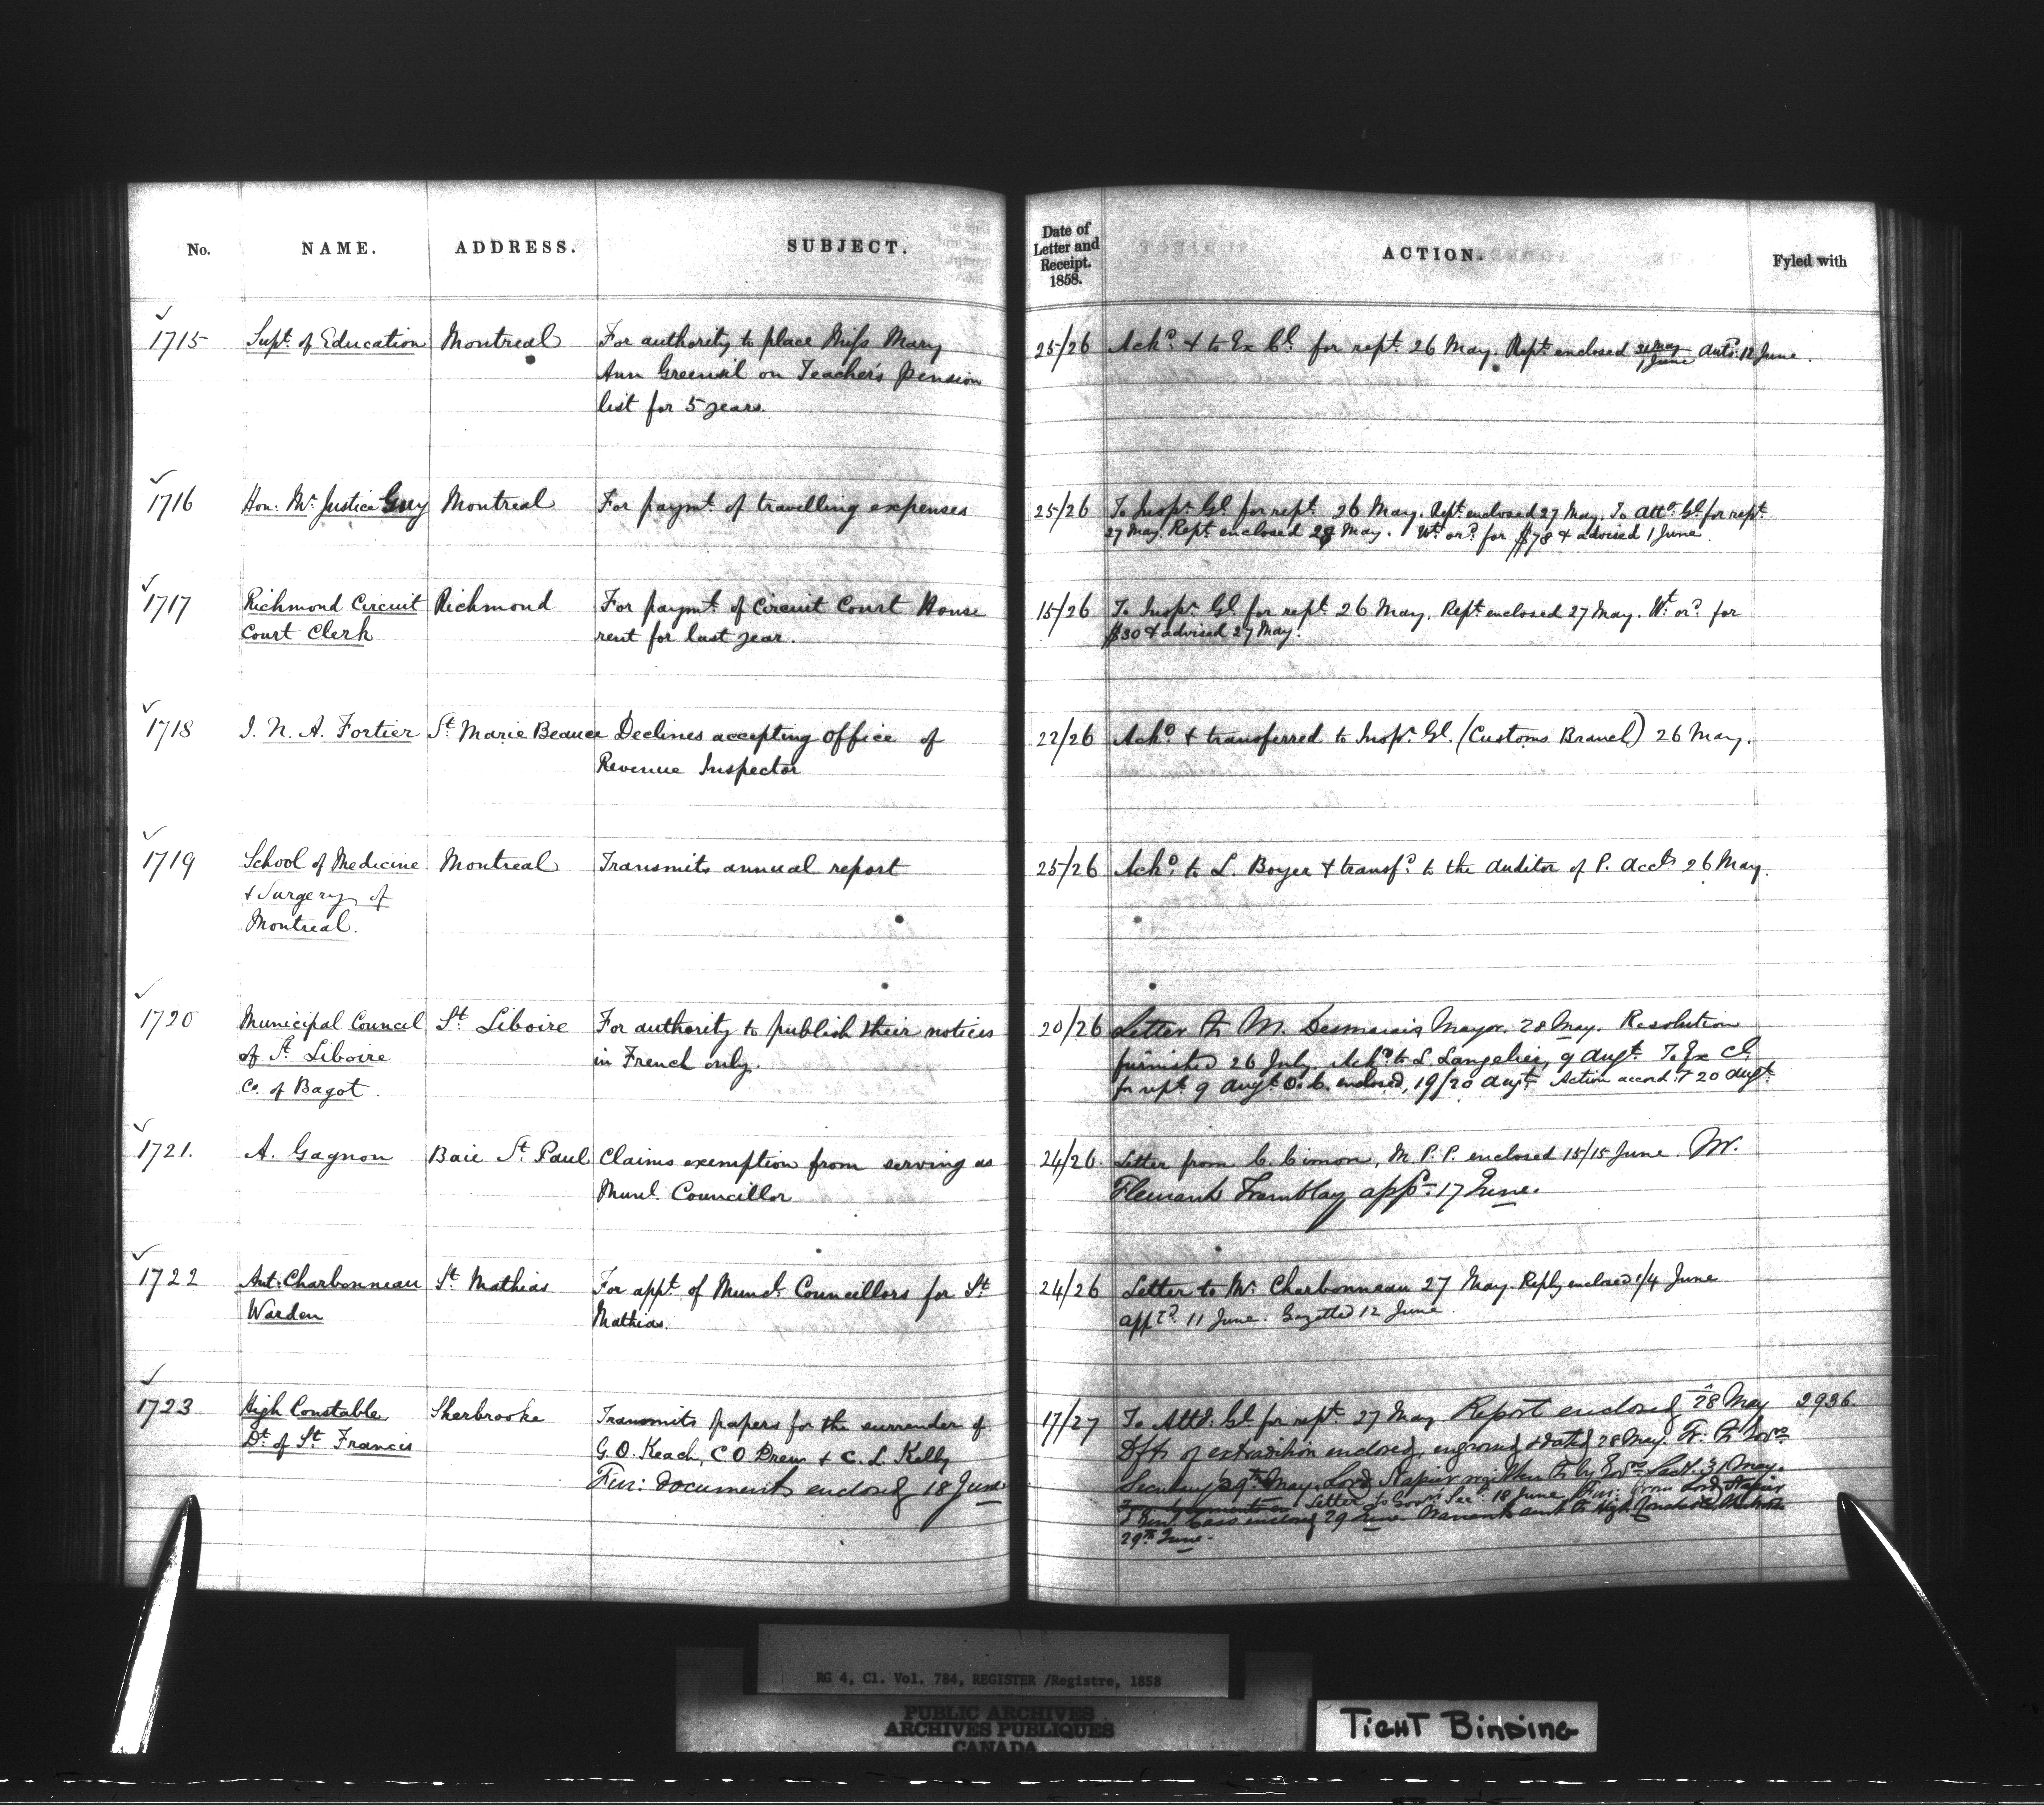 No. NAME. ADDRESS. SUBJECT. Date of Letter and Receipt. 1858. ACTION. Fyled with
1715 Supt. of Education Montreal For authority to place Miss Mary 25/26 Ackd. & to Ex Cl. for rept. 26 May. Rept. enclosed 31 May / 1 June Autd. 12 June.
Ann Greenvil on Teacher's Pension
list for 5 years.
1716 Hon: Mr. Justice Guy Montreal For paymt. of travelling expenses 25/26 To Inspr. Gl. for rept. 26 May. Rept. enclosed 27 May. To Atto. Gl. for rept.
27 May. Rept. enclosed 28 May. Wt. ord. for $78 & advised 1 June.
1717 Richmond Circuit Richmond For paymt. of Circuit Court House 15/26 To Inspr. Gl. for rept. 26 May. Rept. enclosed 27 May. Wt. ord. for
Court Clerk rent for last year. $30 & advised 27 May.
1718 J. N. A. Fortier St. Marie Beauce Declines accepting office of 22/26 Ackd. & transferred to Inspr. Gl. (Customs Branch) 26 May.
Revenue Inspector
1719 School of Medicine Montreal Transmits annual report 25/26 Ackd. to L. Boyer & transfd. to the Auditor of P. Accts 26 May.
& Surgery of
Montreal.
1720 Municipal Council St. Liboire For authority to publish their notices 20/26 Letter to M. Desmarais Mayor. 28 May. Resolution
of St. Liboire in French only. furnished 26 July. Ackd. to L. Langelier, 9 Augt. To Ex Cl.
Co. of Bagot. for rept. 9 Augt. O. C. enclosed, 19/20 Augt. Action accord: 20 Augt.
1721. A. Gagnon Baie St. Paul Claims exemption from serving as 24/26. Letter from C. Cimon, M. P. P. enclosed 15/15 June. Mr.
Munl. Councillor Tremblay appd. 17 June.
1722 Ant: Charbonneau St. Mathias For appt. of Muncl. Councillors for St. 24/26 Letter to Mr. Charbonneau 27 May. Reply enclosed 1/4 June
Warden Mathias. appted. 11 June. Gazetted 12 June.
1723 High Constable Sherbrooke Transmits papers for the surrender of 17/27 To Atto. Gl. for rept. 27 May Report enclosed 28 May 2936.
Dt. of St. Francis G. O. Keach, C O Drew & C. L. Kelly Dfts of extradition enclosed, engrossed & dated 28 May. Tr. to Govrs
Fur: documents enclosed 18 June. Secretary 29th May. Lord Napier written to by Govrs Secty. 31 May.
Letter to Govrs Secy. 18 June. Fur: from Lord Napier
Genl. Cass enclosed 29 June. Warrant sent to High Constable
29th June.
RG 4, Cl. Vol. 784, REGISTER /Registre, 1858
PUBLIC ARCHIVES
ARCHIVES PUBLIQUES
CANADA
TIGHT BINDING